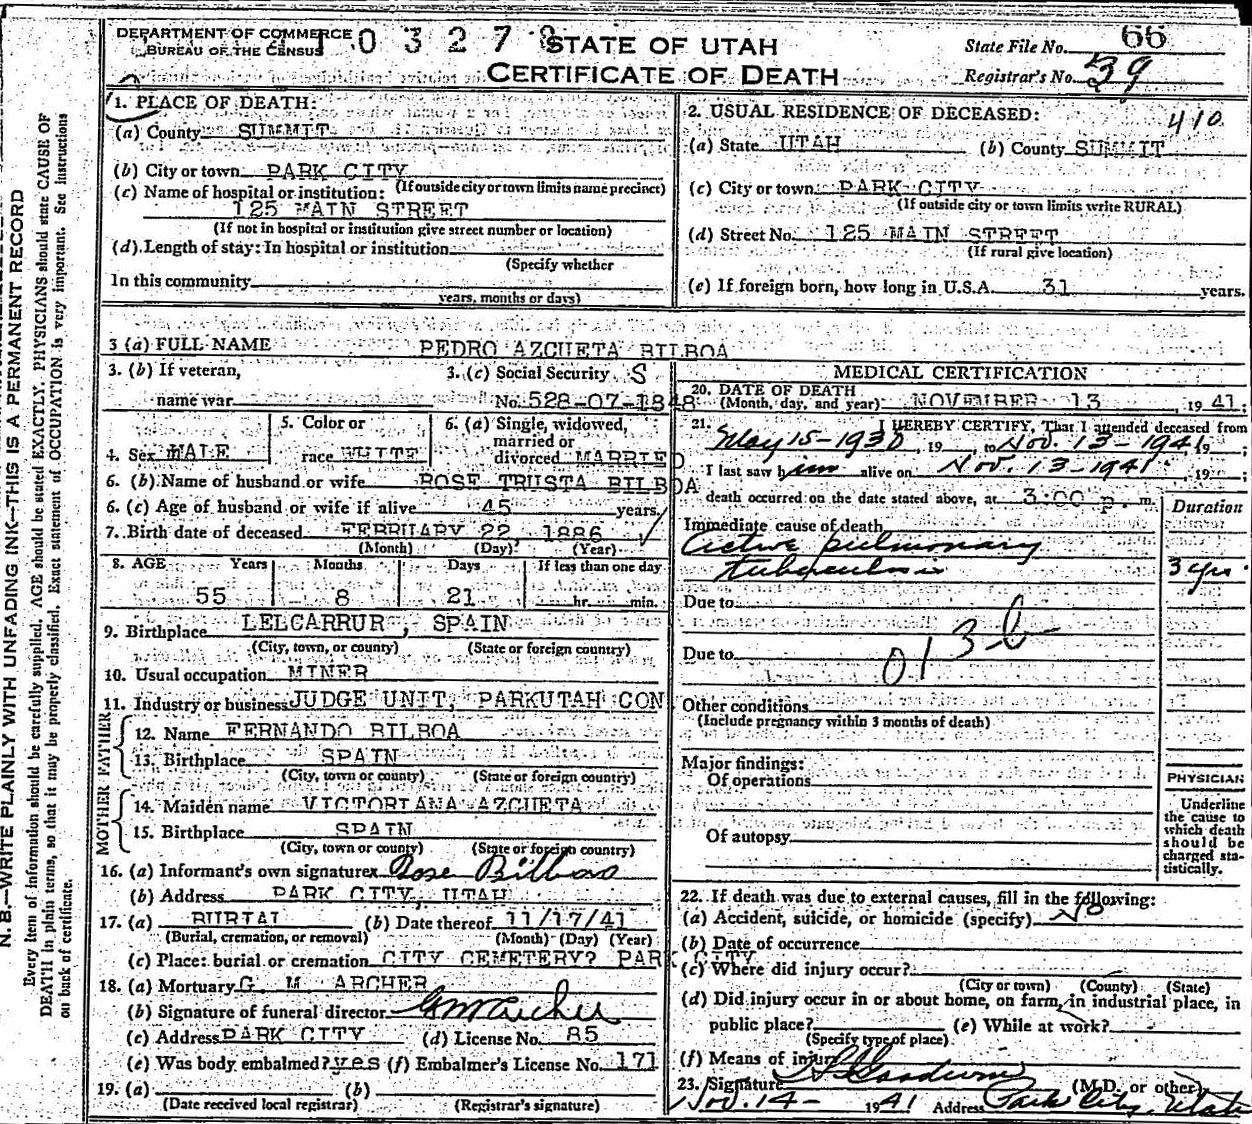 DEPARTMENT OF COMMERCE
BUREAU OF THE CENSUS
0 3 2 7 8
STATE OF UTAH
CERTIFICATE OF DEATH
State File No. 66
Registrar's No. 39
1. PLACE OF DEATH:
(a) County SUMMIT
(b) City or town PARK CITY
(If outside city or town limits name precinct)
(c) Name of hospital or institution:
125 MAIN STREET
(If not in hospital or institution give street number or location)
(d) Length of stay: In hospital or institution
(Specify whether
In this community
years, months or days)
2. USUAL RESIDENCE OF DECEASED:
410
(a) State UTAH (b) County SUMMIT
(c) City or town PARK CITY
(If outside city or town limits write RURAL)
(d) Street No. 125 MAIN STREET
(If rural give location)
(e) If foreign born, how long in U.S.A. 31 years.
3 (a) FULL NAME PEDRO AZCUETA BILBOA
3. (b) If veteran,
name war
3. (c) Social Security S
No. 528-07-1848
4. Sex MALE
5. Color or
race WHITE
6. (a) Single, widowed,
married or
divorced MARRIED
6. (b) Name of husband or wife ROSE TRUSTA BILBOA
6. (c) Age of husband or wife if alive 45 years
7. Birth date of deceased FEBRUARY 22, 1886
(Month) (Day) (Year)
8. AGE Years Months Days If less than one day
55 8 21 hr. min.
9. Birthplace LELCARRUR, SPAIN
(City, town, or county) (State or foreign country)
10. Usual occupation MINER
11. Industry or business JUDGE UNIT, PARKUTAH CON
FATHER
12. Name FERNANDO BILBOA
13. Birthplace SPAIN
(City, town or county) (State or foreign country)
MOTHER
14. Maiden name VICTORIANA AZCUETA
15. Birthplace SPAIN
(City, town or county) (State or foreign country)
16. (a) Informant's own signature x Rose Bilboa
(b) Address PARK CITY, UTAH
17. (a) BURIAL (b) Date thereof 11/17/41
(Burial, cremation, or removal) (Month) (Day) (Year)
(c) Place: burial or cremation CITY CEMETERY? PARK CITY
18. (a) Mortuary G. M. ARCHER
(b) Signature of funeral director GM Archer
(c) Address PARK CITY (d) License No. 85
(e) Was body embalmed? yes (f) Embalmer's License No. 171
19. (a) (b)
(Date received local registrar) (Registrar's signature)
MEDICAL CERTIFICATION
20. DATE OF DEATH
(Month, day, and year) NOVEMBER 13, 1941
21. I HEREBY CERTIFY, That I attended deceased from
May 15-1930, 19, to Nov. 13-1941 19;
I last saw him alive on Nov. 13-1941, 19;
death occurred on the date stated above, at 3:00 p. m.
Duration
Immediate cause of death
Active pulmonary
tuberculosis 3 yrs.
Due to
013 b
Due to
Other conditions
(Include pregnancy within 3 months of death)
Major findings:
Of operations
Of autopsy
PHYSICIAN
Underline
the cause to
which death
should be
charged sta-
tistically.
22. If death was due to external causes, fill in the following:
(a) Accident, suicide, or homicide (specify) No
(b) Date of occurrence
(c) Where did injury occur?
(City or town) (County) (State)
(d) Did injury occur in or about home, on farm, in industrial place, in
public place? (e) While at work?
(Specify type of place)
(f) Means of injury
23. Signature Goodwin (M.D. or other)
Nov. 14- 1941 Address Park City, Utah
N. B.—WRITE PLAINLY WITH UNFADING INK—THIS IS A PERMANENT RECORD
Every item of information should be carefully supplied. AGE should be stated EXACTLY. PHYSICIANS should state CAUSE OF
DEATH in plain terms, so that it may be properly classified. Exact statement of OCCUPATION is very important. See Instructions
on back of certificate.